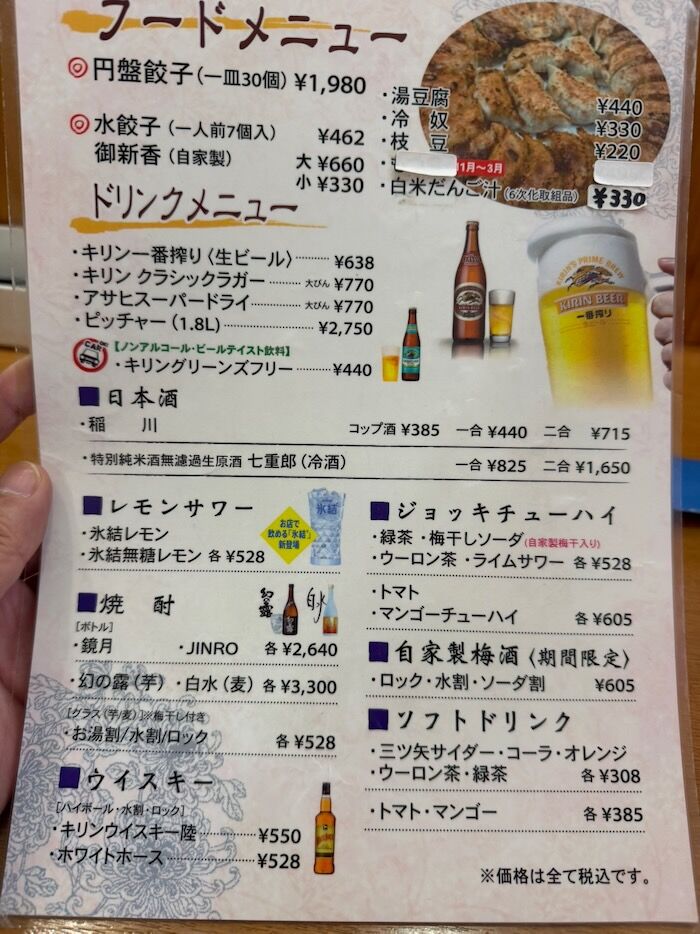 フードメニュー
円盤餃子(一皿30個) ¥1,980
水餃子(一人前7個入) ¥462
御新香(自家製) 大 ¥660
小 ¥330
・湯豆腐 ¥440
・冷 奴 ¥330
・枝 豆 ¥220
1月〜3月
・白米だんご汁(6次化取組品) ¥330
ドリンクメニュー
・キリン一番搾り〈生ビール〉 ¥638
・キリン クラシックラガー 大びん ¥770
・アサヒスーパードライ 大びん ¥770
・ピッチャー(1.8L) ¥2,750
【ノンアルコール・ビールテイスト飲料】
・キリングリーンズフリー ¥440
KIRIN'S PRIME BREW
KIRIN BEER
一番搾り
■日本酒
・稲 川 コップ酒 ¥385 一合 ¥440 二合 ¥715
・特別純米酒無濾過生原酒 七重郎(冷酒) 一合 ¥825 二合 ¥1,650
■レモンサワー
・氷結レモン
・氷結無糖レモン 各 ¥528
お店で
飲める「氷結」
新登場
氷結
■焼 酎
[ボトル]
・鏡月 ・JINRO 各 ¥2,640
・幻の露(芋)・白水(麦) 各 ¥3,300
[グラス(芋/麦)]※梅干し付き
・お湯割/水割/ロック 各 ¥528
幻の露
白水
■ウイスキー
[ハイボール・水割・ロック]
・キリンウイスキー陸 ¥550
・ホワイトホース ¥528
■ジョッキチューハイ
・緑茶 ・梅干しソーダ(自家製梅干入り)
・ウーロン茶 ・ライムサワー 各 ¥528
・トマト
・マンゴーチューハイ 各 ¥605
■自家製梅酒〈期間限定〉
・ロック・水割・ソーダ割 ¥605
■ソフトドリンク
・三ツ矢サイダー・コーラ・オレンジ
・ウーロン茶・緑茶 各 ¥308
・トマト・マンゴー 各 ¥385
※価格は全て税込です。